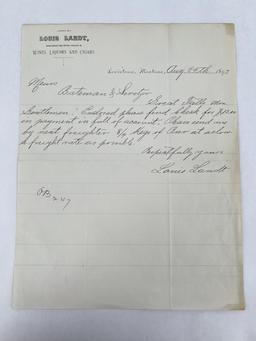 LOUIS LANDT,
WINES, LIQUORS AND CIGARS
Lewistown, Montana, Aug 24th 189
Messrs
Bateman &
Great Falls Mon
Gentlemen: Enclosed please find check for
in payment in full of account. Please send me
by next freighter 8/4 kegs of Beer at as low
a freight rate as possible.
Respectfully yours
Louis Landt